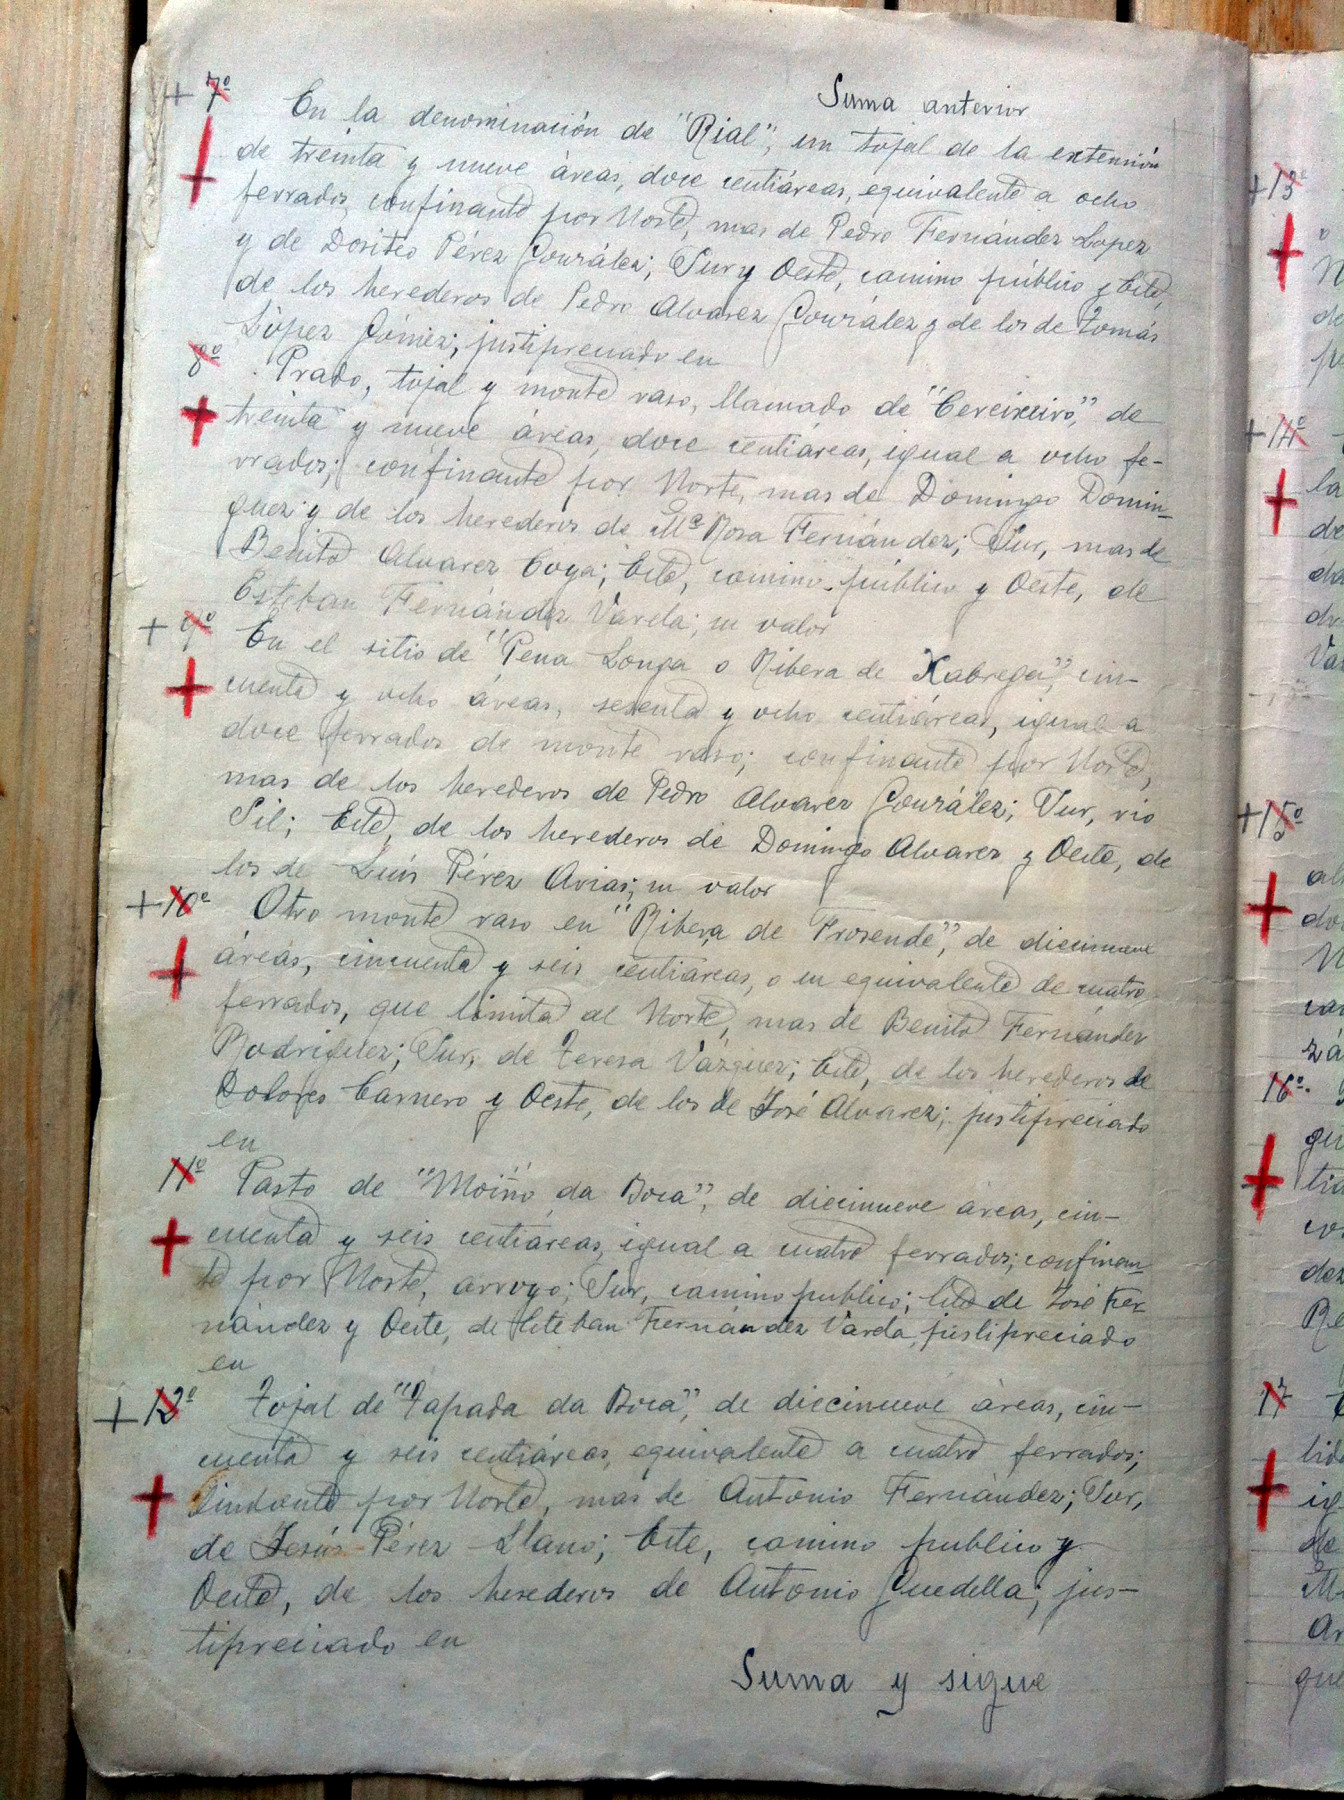 Suma anterior
+ 7º En la denominación de "Rial", un tojal de la extensión
de treinta y nueve áreas, doce centiáreas, equivalente a ocho
ferrados, confinante por Norte, mas de Pedro Fernández Lopez
y de Dositeo Pérez González; Sur y Oeste, camino público y Este,
de los herederos de Pedro Alvarez González y de los de Tomás
López Gómez; justipreciado en
8º Prado, tojal y monte raso, llamado de "Cereixeiro", de
treinta y nueve áreas, doce centiáreas, igual a ocho fe-
rrados; confinante por Norte, mas de Domingo Domin-
guez y de los herederos de Mª Rosa Fernández; Sur, mas de
Benito Alvarez Goya; Este, camino público y Oeste, de
Esteban Fernández Varela; su valor
+ 9º En el sitio de "Pena Longa o Ribera de Xabrega", cin-
cuenta y ocho áreas, sesenta y ocho centiáreas, igual a
doce ferrados de monte raso; confinante por Norte,
mas de los herederos de Pedro Alvarez González; Sur, rio
Sil; Este, de los herederos de Domingo Alvarez y Oeste, de
los de Luis Pérez Arias; su valor
+ 10º Otro monte raso en "Ribera de Frosende", de diecinueve
áreas, cincuenta y seis centiáreas, o su equivalente de cuatro
ferrados, que limita al Norte, mas de Benito Fernández
Rodriguez; Sur, de Teresa Vázquez; Este, de los herederos de
Dolores Carnero y Oeste, de los de José Alvarez; justipreciado
en
11º Pasto de "Moiño da Boca", de diecinueve áreas, cin-
cuenta y seis centiáreas, igual a cuatro ferrados; confinan-
te por Norte, arroyo; Sur, camino publico; Este de José Fer-
nández y Oeste, de Esteban Fernández Varela, justipreciado
en
+ 12º Tojal de "Tapada da Boca", de diecinueve áreas, cin-
cuenta y seis centiáreas, equivalente a cuatro ferrados;
lindante por Norte, mas de Antonio Fernández; Sur,
de Jesús Pérez Llano; Este, camino publico y
Oeste, de los herederos de Antonio Quedella; jus-
tipreciado en
Suma y sigue
+ 13º
+ 14º
la
de
+ 15º
16º
17
de